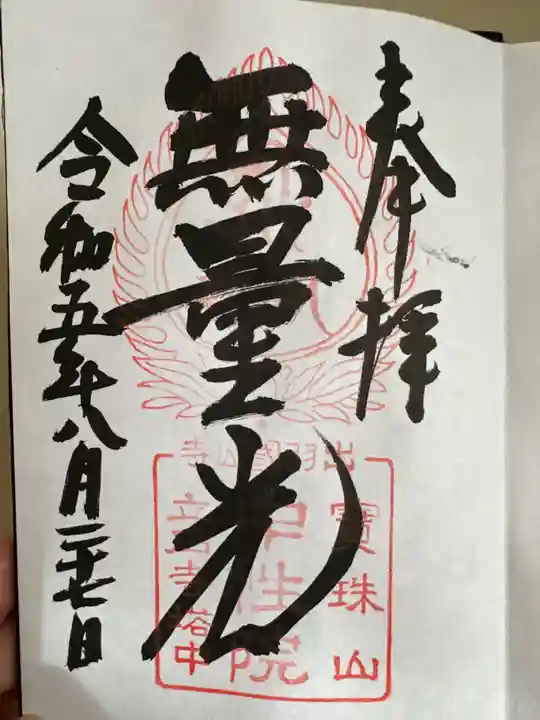 奉拝
無量光
出羽國山寺
寶珠山
中性院
立石寺塔中
令和五年八月二十七日